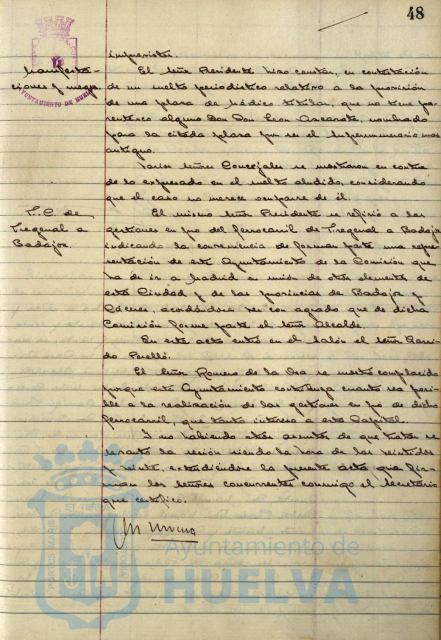 48
imprevistos.
Manifesta-
ciones y ruegos
AYUNTAMIENTO DE HUELVA
El Señor Presidente hizo constar, en contestación
de un suelto periodístico relativo a la provisión
de una plaza de Médico titular, que no tiene pa-
rentesco alguno con Don Leon Azcarate, nombrado
para la citada plaza por ser el Supernumerario mas
antiguo.
Varios Señores Concejales se mostraron en contra
de lo expresado en el suelto aludido, considerando
que el caso no merece ocuparse de él.
F. C. de
Fregenal a
Badajoz.
El mismo Señor Presidente se refirió a las
gestiones en pro del ferrocarril de Fregenal a Badajoz
indicando la conveniencia de formar parte una repre-
sentación de este Ayuntamiento de la Comisión que
ha de ir a Madrid en unión de otros elementos de
esta Ciudad y de las provincias de Badajoz y
Cáceres, acordándose ver con agrado que de dicha
Comisión forme parte el Señor Alcalde.
En este acto entró en el Salón el Señor Garri-
do Perelló.
El Señor Romero de la Osa se mostró complacido
porque este Ayuntamiento contribuya cuanto sea posi-
ble a la realización de las gestiones en pro de dicho
ferrocarril, que tanto interesa a esta Capital.
Y no habiendo otros asuntos de que tratar se
levantó la sesión siendo la hora de las veintidos
y veinte, extendiéndose la presente acta que fir-
man los señores concurrentes conmigo el Secretario
que certifico.
Ayuntamiento de
HUELVA